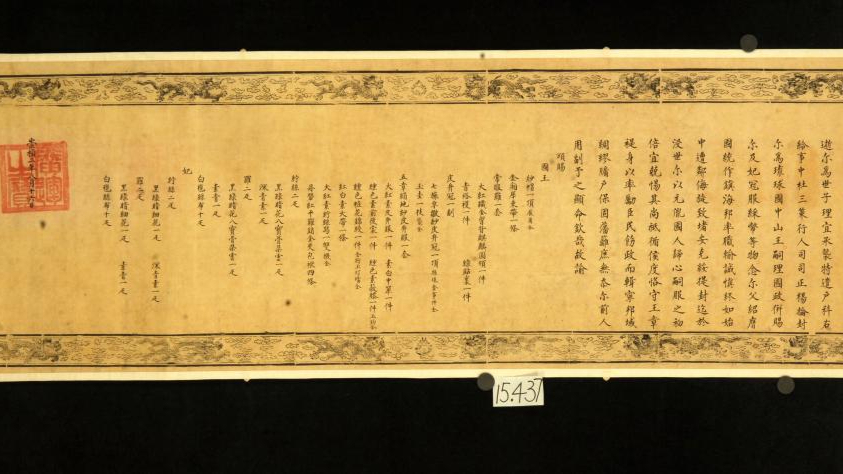 遊尔為世子理宜承襲特遣户科右
給事中杜三策行人司司正楊掄封
尔為琉球國中山王嗣理國政併賜
尔及妃冠服綵幣等物念尔父紹膺
國統作鎮海邦率職輸誠慎終如始
中遭鄰侮旋致堵安克綏提封迄於
浸世尔以元良國人歸心嗣服之初
倍宜兢惕其尚祗循侯度恪守王章
禔身以率勵臣民飭政而輯寧邦域
綢繆牖户保固藩籬庶無忝尔前人
用副予之顯命欽哉故諭
頒賜
國王
紗帽一頂展角全
金廂犀束帶一條
常服羅一套
大紅織金胷背麒麟圓領一件
青褡𧞤一件 綠貼裏一件
皮弁冠一副
七旒皂皺紗皮弁冠一頂旒珠金事件全
玉圭一枝袋全
五章絹地紗皮弁服一套
大紅素皮弁服一件 素白中單一件
纁色素前後裳一件 纁色素蔽膝一件玉鈎全
纁色粧花錦綬一件金鈎玉玎璫全
紅白素大帶一條
大紅素紵絲舄一雙襪全
丹礬紅平羅銷金夾包袱四條
紵絲二疋
黑綠暗花八寶骨朵雲一疋
深青素一疋
羅二疋
黑綠暗花八寶骨朵雲一疋
青素一疋
白㲲絲布十疋
妃
紵絲二疋
黑綠暗細花一疋 深青素一疋
羅二疋
黑綠暗細花一疋 青素一疋
白㲲絲布十疋
崇禎二年八月十六日
廣運
之寶
15.437